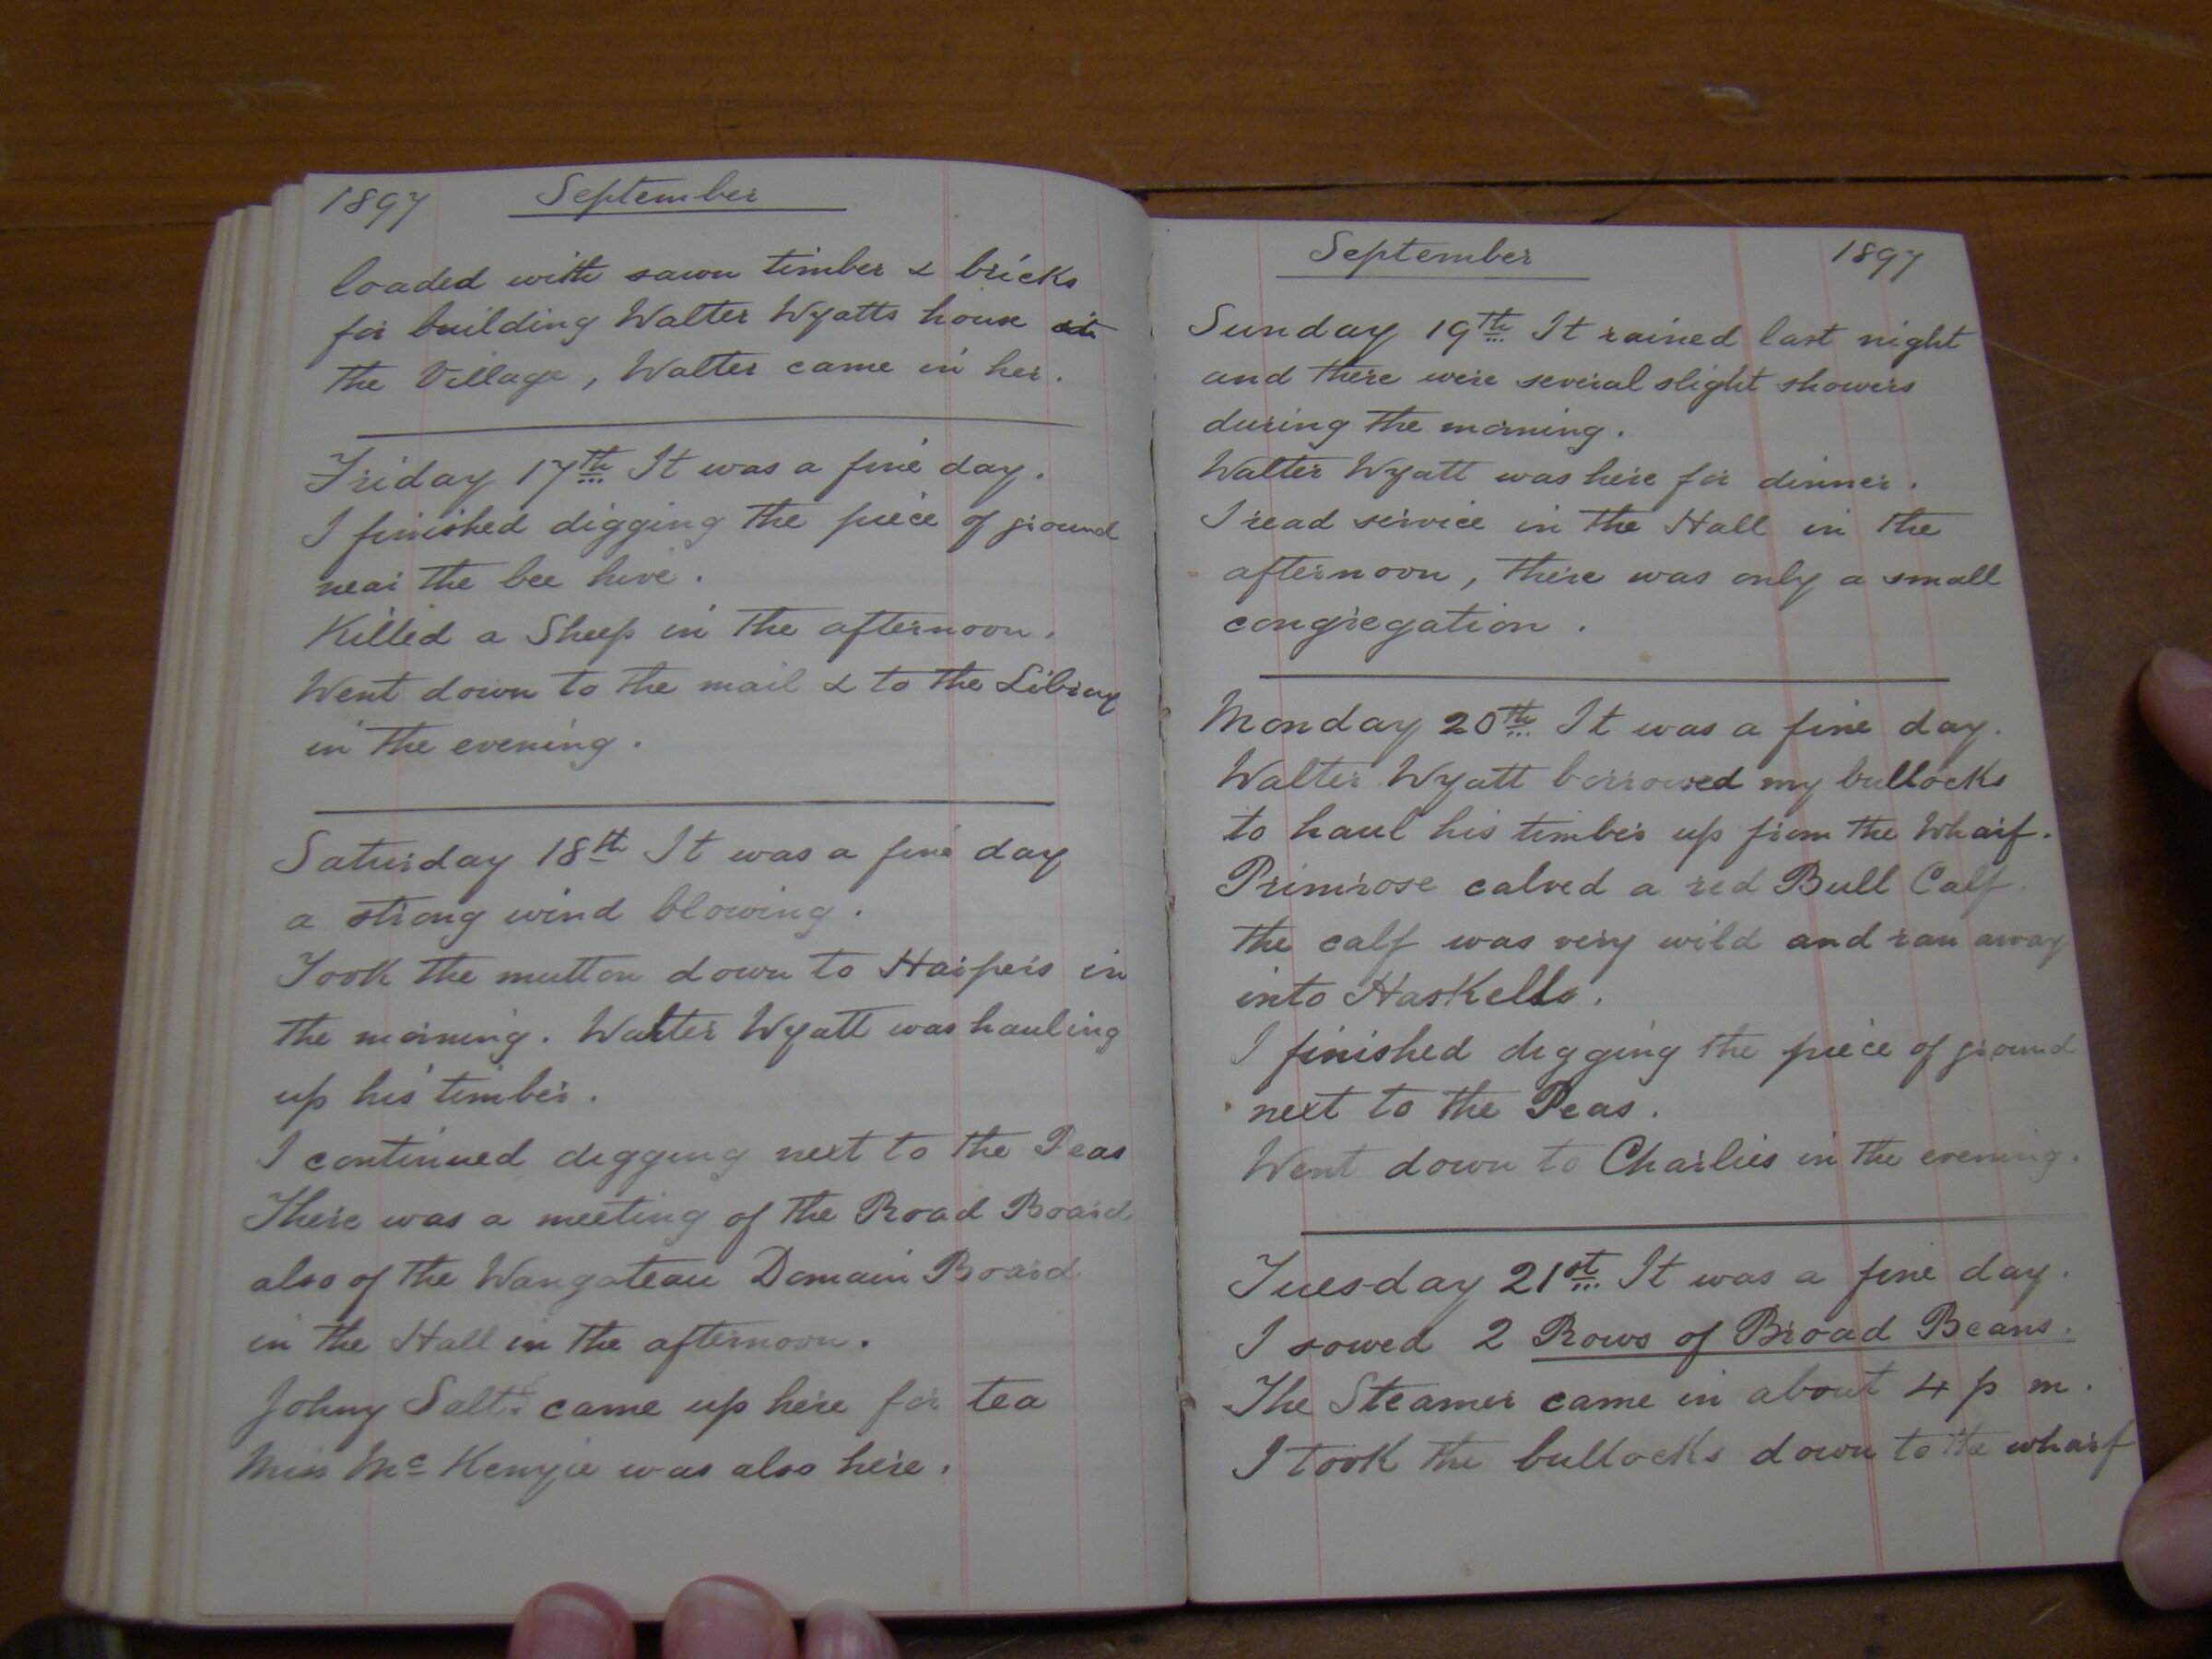 1897 September
loaded with sawn timber & bricks
for building Walter Wyatts house at
the Village, Walter came in her.
Friday 17th It was a fine day.
I finished digging the piece of ground
near the bee hive.
Killed a Sheep in the afternoon.
Went down to the mail & to the Library
in the evening.
Saturday 18th It was a fine day
a strong wind blowing.
Took the mutton down to Harpers in
the morning. Walter Wyatt was hauling
up his timber.
I continued digging next to the Peas
There was a meeting of the Road Board
also of the Wangateau Domain Board
in the Hall in the afternoon.
Johny came up here for tea
Miss Mc Kenzie was also here.
September 1897
Sunday 19th It rained last night
and there were several slight showers
during the morning.
Walter Wyatt was here for dinner.
I read service in the Hall in the
afternoon, there was only a small
congregation.
Monday 20th It was a fine day.
Walter Wyatt borrowed my bullocks
to haul his timber up from the Wharf.
Primrose calved a red Bull Calf
the calf was very wild and ran away
into Haskells.
I finished digging the piece of ground
next to the Peas.
Went down to Charlies in the evening.
Tuesday 21st It was a fine day.
I sowed 2 Rows of Broad Beans.
The Steamer came in about 4 p m.
I took the bullocks down to the wharf